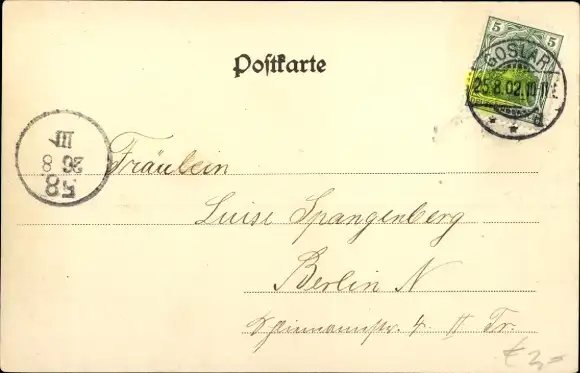 Postkarte
5 5
GOSLAR
25.8.02.10-11
* * d
58
26 8
III
Fräulein
Luise Spangenberg
Berlin N
4 II Tr.
€ 3,=